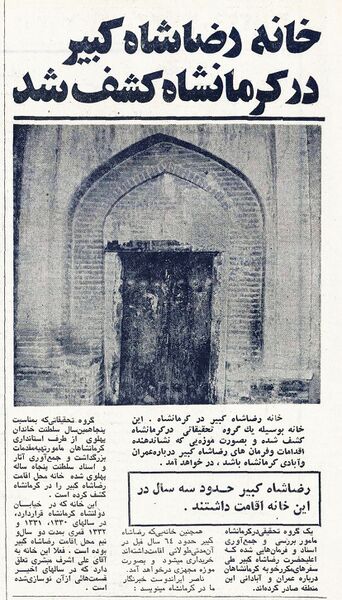 خانه رضاشاه کبیر
در کرمانشاه کشف شد
خانه رضاشاه کبیر در کرمانشاه . این
خانه بوسیله یک گروه تحقیقاتی درکرمانشاه
کشف شده و بصورت موزه‌یی که نشاندهنده
اقدامات و فرمان های رضاشاه کبیر درباره‌عمران
وآبادی کرمانشاه باشد ، در خواهد آمد .
رضاشاه کبیر حدود سه سال در
این خانه اقامت داشتند .
یک گروه تحقیقی‌درکرمانشاه
مامور بررسی و جمع‌آوری
اسناد و فرمان‌هایی شده که
اعلیحضرت رضاشاه کبیر طی
سفرهای‌مکررخویه کرمانشاه
درباره عمران و آبادانی این
منطقه صادر کرده‌اند.
همچنین خانه‌یی که رضاشاه
کبیر حدود ٦٤ سال قبل در
آن‌مدتی‌طولانی اقامت‌داشته‌اند
خریداری میشود و بصورت
موزه مجهزی درخواهد آمد.
ناصر ایراندوست خبرنگار
ما در کرمانشاه مینویسد :
گروه تحقیقاتی‌که بمناسبت
پنجاهمین‌سال سلطنت خاندان
پهلوی از طرف استانداری
کرمانشاهان مامورتهیه‌مقدمات
بزرگداشت و جمع‌آوری آثار
و اسناد سلطنت پنجاه ساله
پهلوی شده خانه محل اقامت
رضاشاه کبیر را در کرمانشاه
کشف کرده است .
این خانه‌که در خیابان
دولتشاه کرمانشاه قراردارد،
در سالهای ۱۳۳۰، ۱۳۳۱ و
۱۳۳۲ قمری بمدت دو سال‌و
نیم محل اقامت رضاشاه کبیر
بوده است . فعلا این خانه به
آقای علی اشرف مبشری تعلق
دارد که در سالهای اخیر
قسمت‌هائی ازآن نوسازی‌شده
است .